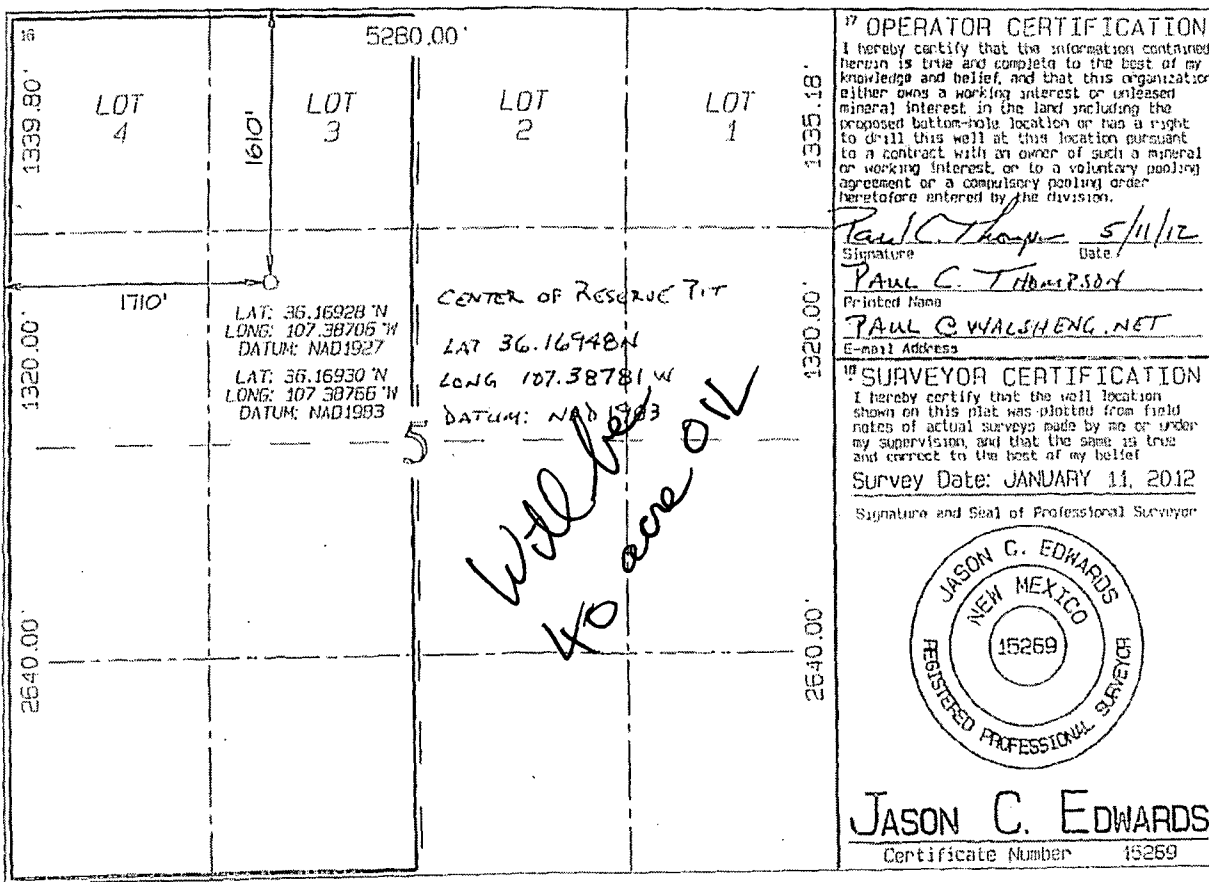 16
5280.00'
1339.80'
LOT
4
1610'
LOT
3
LOT
2
LOT
1
1335.18'
1710'
LAT: 36.16928 °N
LONG: 107.38706 °W
DATUM: NAD1927
LAT: 36.16930 °N
LONG: 107.38766 °W
DATUM: NAD1983
CENTER OF RESERVE PIT
LAT 36.16948N
LONG 107.38781 W
DATUM: NAD 1983
1320.00'
1320.00'
5
Will be
40 acre OIL
2640.00'
2640.00'
17 OPERATOR CERTIFICATION
I hereby certify that the information contained
herein is true and complete to the best of my
knowledge and belief, and that this organization
either owns a working interest or unleased
mineral interest in the land including the
proposed bottom-hole location or has a right
to drill this well at this location pursuant
to a contract with an owner of such a mineral
or working interest, or to a voluntary pooling
agreement or a compulsory pooling order
heretofore entered by the division.
Paul C. Thompson 5/11/12
Signature Date
PAUL C. THOMPSON
Printed Name
PAUL @ WALSHENG.NET
E-mail Address
18 SURVEYOR CERTIFICATION
I hereby certify that the well location
shown on this plat was plotted from field
notes of actual surveys made by me or under
my supervision, and that the same is true
and correct to the best of my belief
Survey Date: JANUARY 11, 2012
Signature and Seal of Professional Surveyor
JASON C. EDWARDS
NEW MEXICO
15269
REGISTERED PROFESSIONAL SURVEYOR
JASON C. EDWARDS
Certificate Number 15269